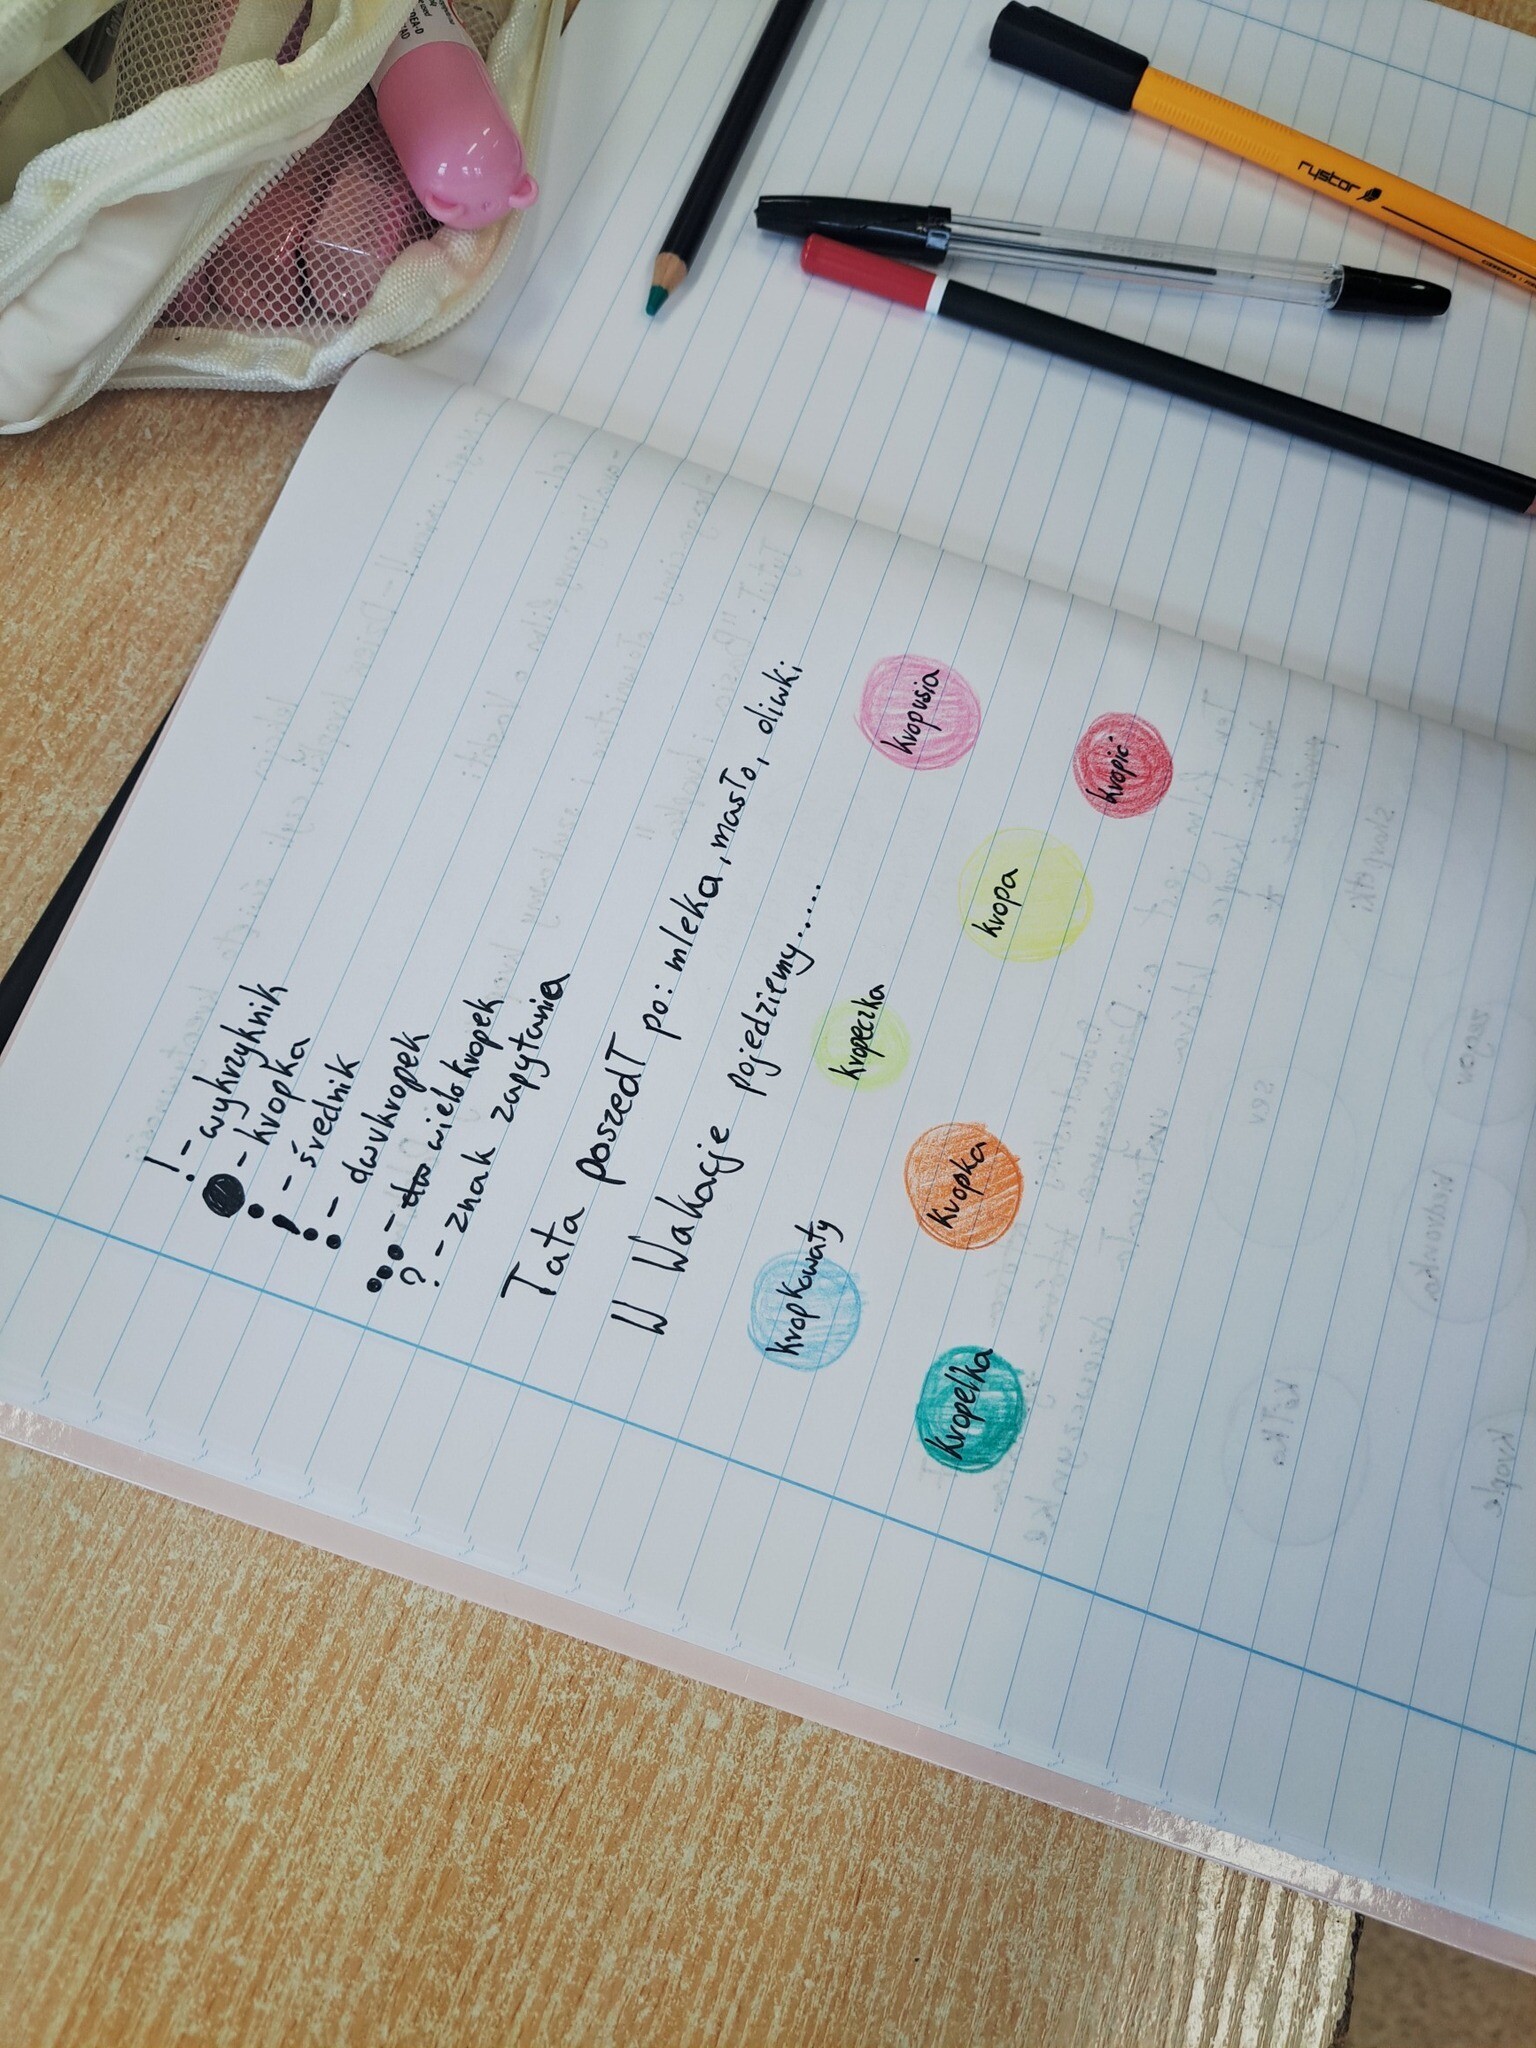 ! - wykrzyknik
● - kropka
; - średnik
: - dwukropek
... - wielokropek
? - znak zapytania
Tata poszedł po: mleka, masło, oliwki
W Wakacje pojedziemy.....
kropkowaty
kropeczka
kropusia
kropelka
kropka
kropa
kropić
rystor